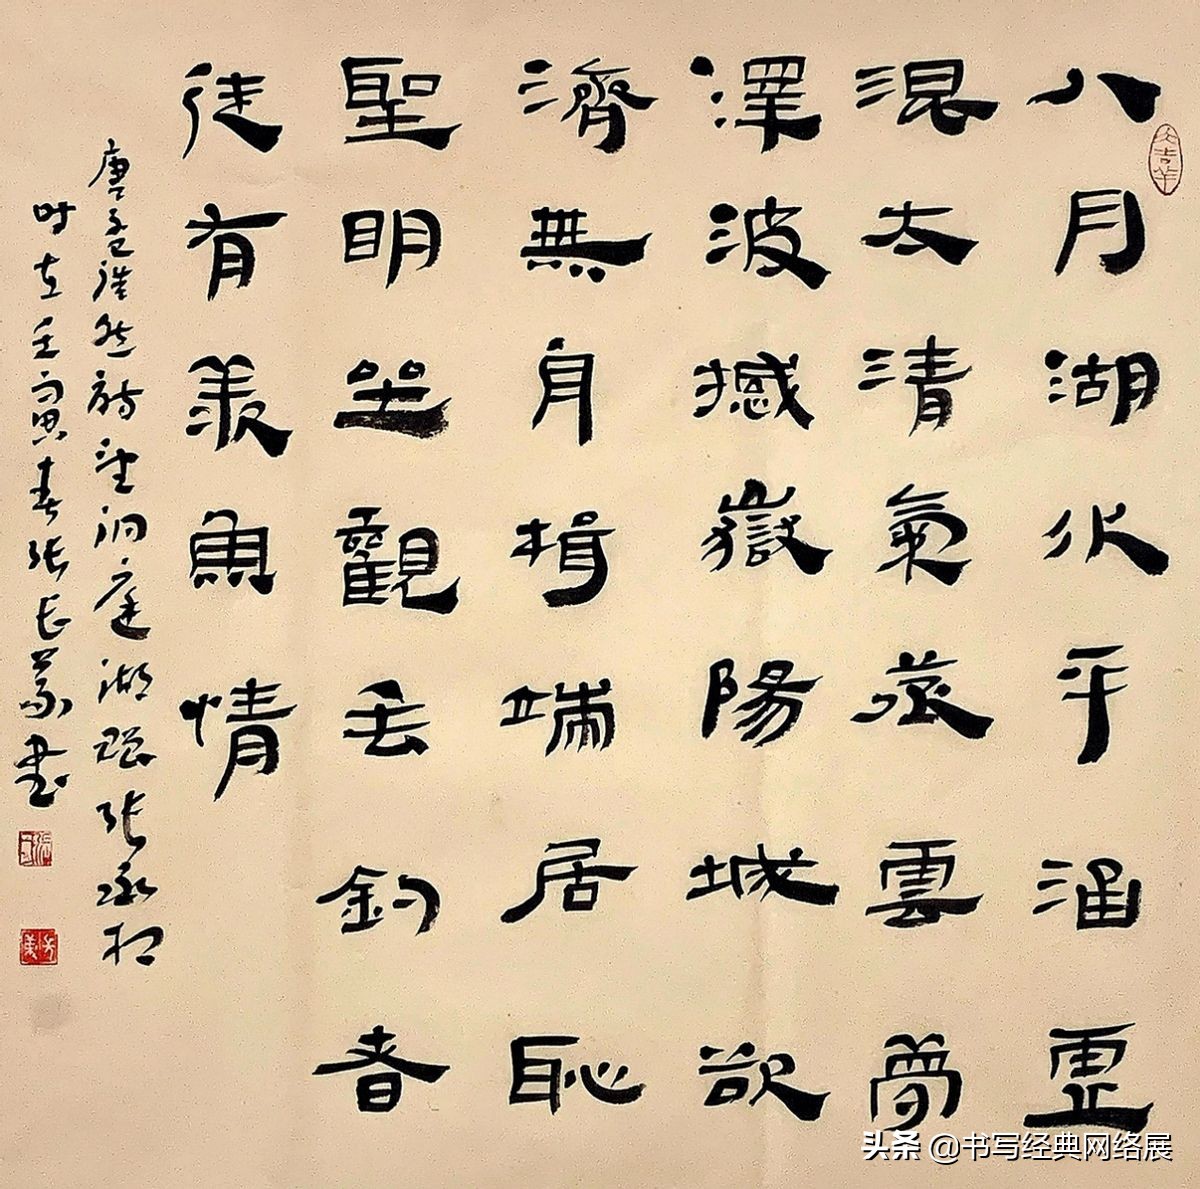 八月湖水平涵虛
混太清氣蒸雲夢
澤波撼嶽陽城欲
濟無舟楫端居恥
聖明坐觀垂釣者
徒有羨魚情
唐孟浩然詩望洞庭湖贈張丞相
時在壬寅春張長義書
大吉羊
头条 @书写经典网络展